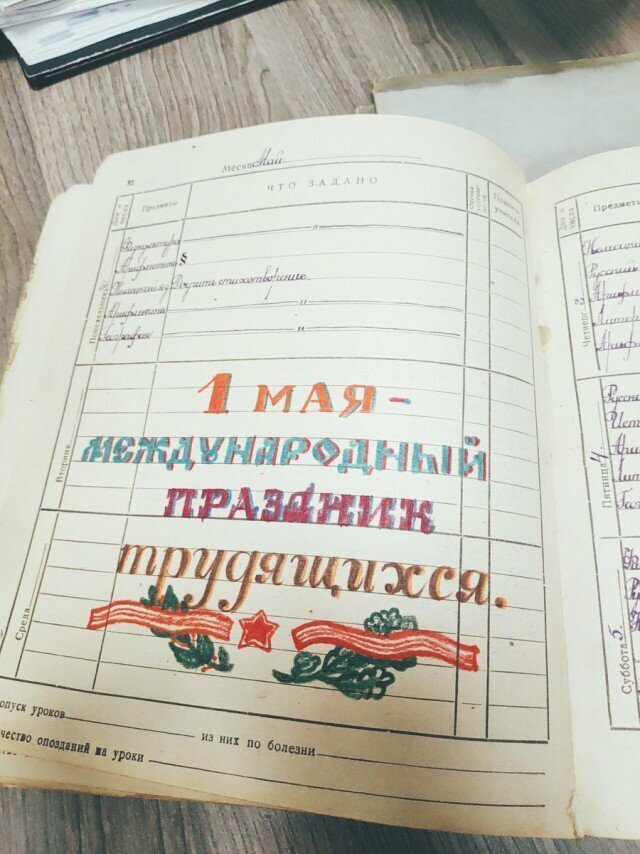 37
Месяц Май.
Дни и числа Предметы ЧТО ЗАДАНО Подпись учителя
Понедельник 30
Физкультура "
Арифметика §
Немецкий яз Доучить стихотворение.
Арифметика "
География "
Вторник
Среда
1 МАЯ -
МЕЖДУНАРОДНЫЙ
ПРАЗДНИК
трудящихся.
опуск уроков из них по болезни
чество опозданий на уроки
Дни и числа Предметы
Четверг 3
Немецкий
Русский
Арифм
Литер
Арифм
Пятница 4
Русский
Ист
Ари
Лит
Суббота 5